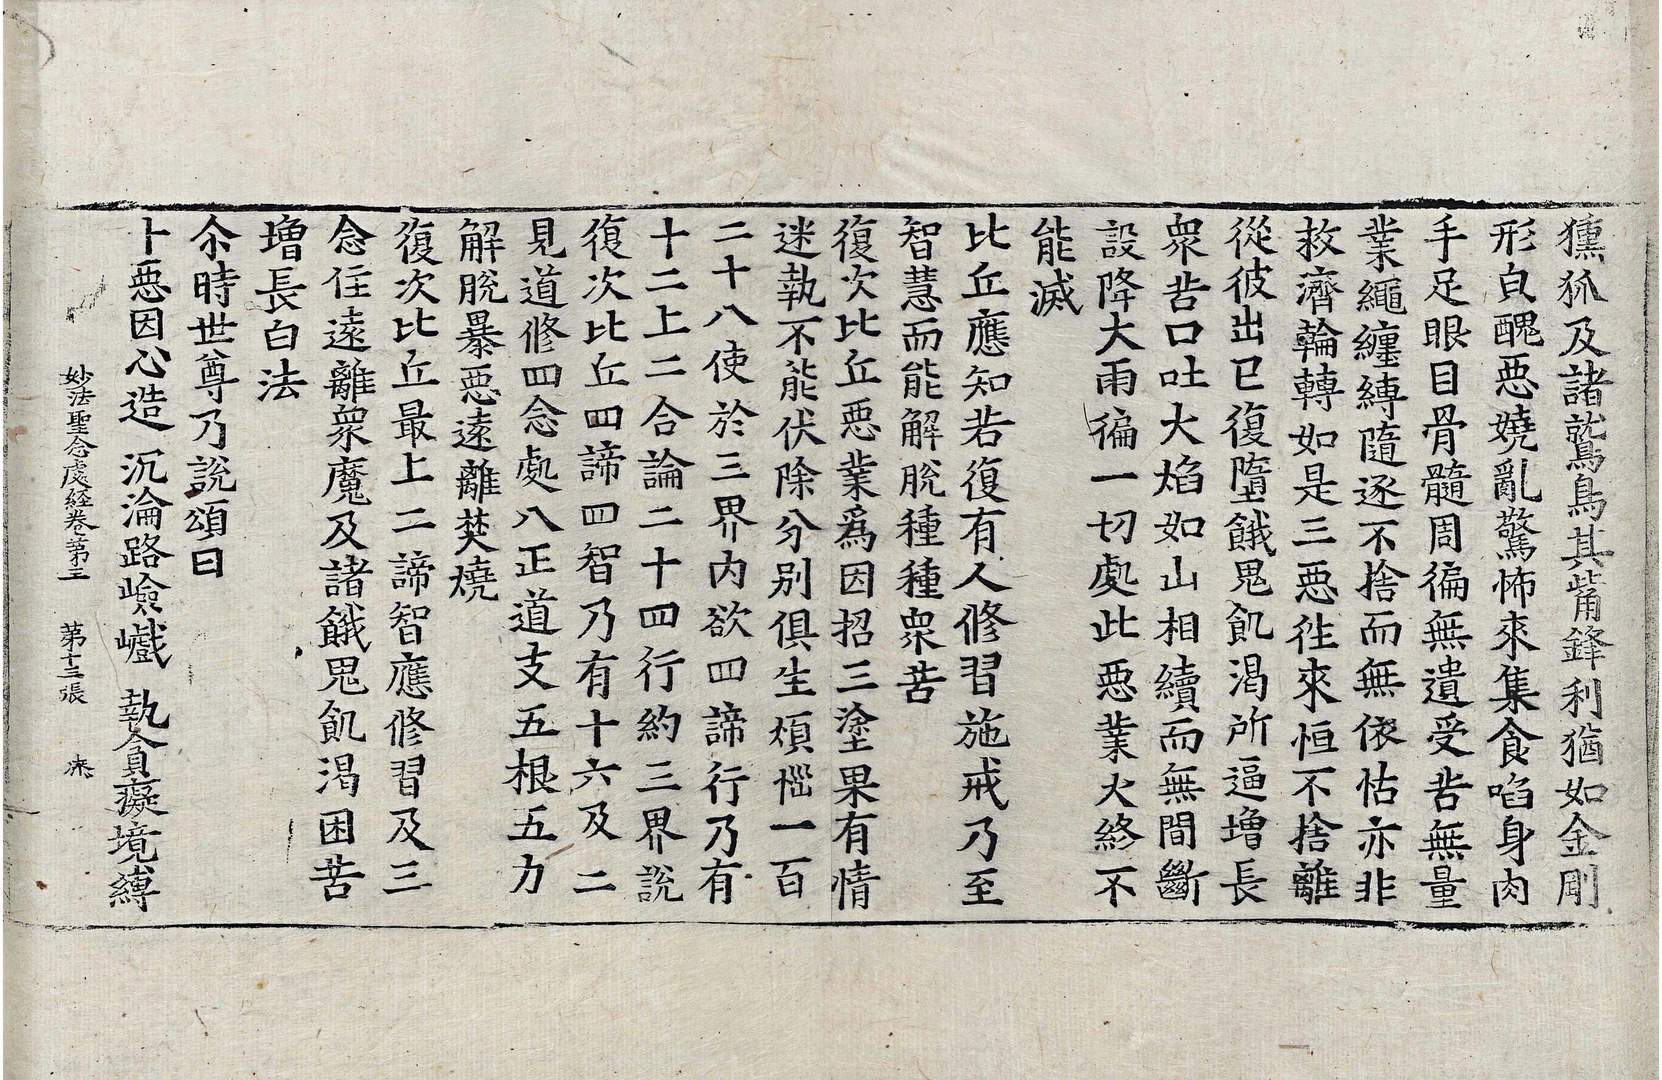 獯狐及諸鷲鳥其觜鋒利猶如金剛
形皃醜惡嬈亂驚怖來集食啗身肉
手足眼目骨髓周徧無遺受苦無量
業繩纏縛隨逐不捨而無依怙亦非
救濟輪轉如是三惡徃來恒不捨離
從彼出已復墮餓鬼飢渴所逼增長
衆苦口吐大焰如山相續而無間斷
設降大雨徧一切處此惡業火終不
能滅
比丘應知若復有人修習施戒乃至
智慧而能解脫種種衆苦
復次比丘惡業爲因招三塗果有情
迷執不能伏除分別俱生煩惱一百
二十八使於三界內欲四諦行乃有
十二上二合論二十四行約三界說
復次比丘四諦四智乃有十六及二
見道修四念處八正道支五根五力
解脫暴惡遠離焚燒
復次比丘最上二諦智應修習及三
念住遠離衆魔及諸餓鬼飢渴困苦
增長白法
尒時世尊乃說頌曰
十惡因心造 沉淪路嶮巇 執貪癡境縛
妙法聖念處經卷第三 第十三張 來